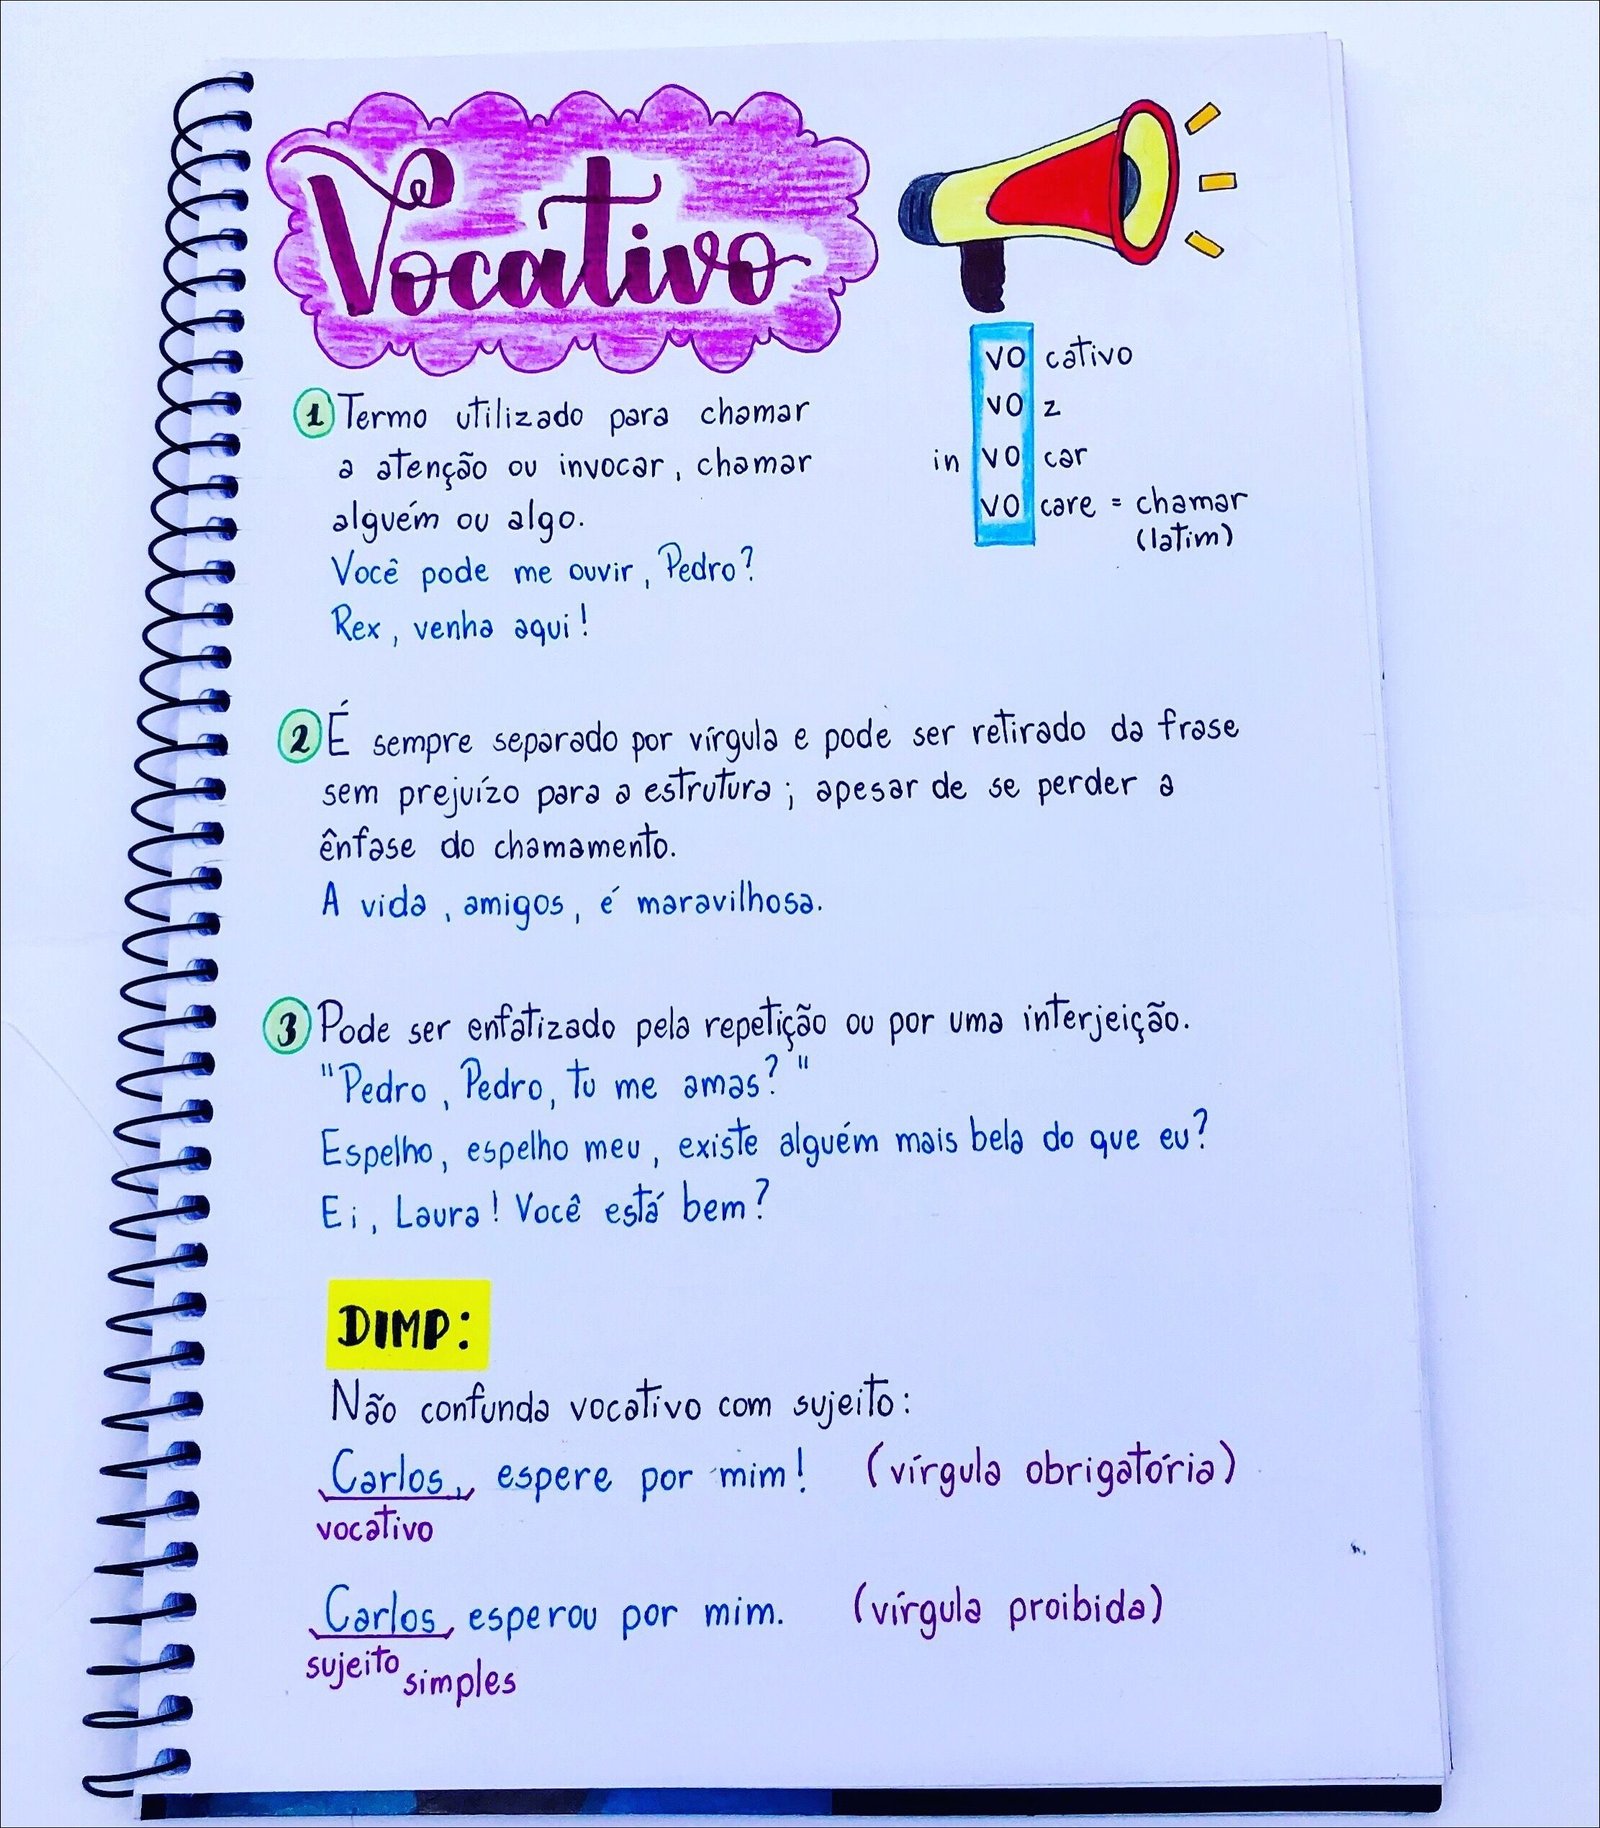 Vocativo
vo cativo
vo z
in vo car
vo care = chamar
(latim)
1 Termo utilizado para chamar
a atenção ou invocar, chamar
alguém ou algo.
Você pode me ouvir, Pedro?
Rex, venha aqui!
2 É sempre separado por vírgula e pode ser retirado da frase
sem prejuízo para a estrutura; apesar de se perder a
ênfase do chamamento.
A vida, amigos, é maravilhosa.
3 Pode ser enfatizado pela repetição ou por uma interjeição.
"Pedro, Pedro, tu me amas?"
Espelho, espelho meu, existe alguém mais bela do que eu?
Ei, Laura! Você está bem?
DIMP:
Não confunda vocativo com sujeito:
Carlos, espere por mim! (vírgula obrigatória)
vocativo
Carlos esperou por mim. (vírgula proibida)
sujeito simples